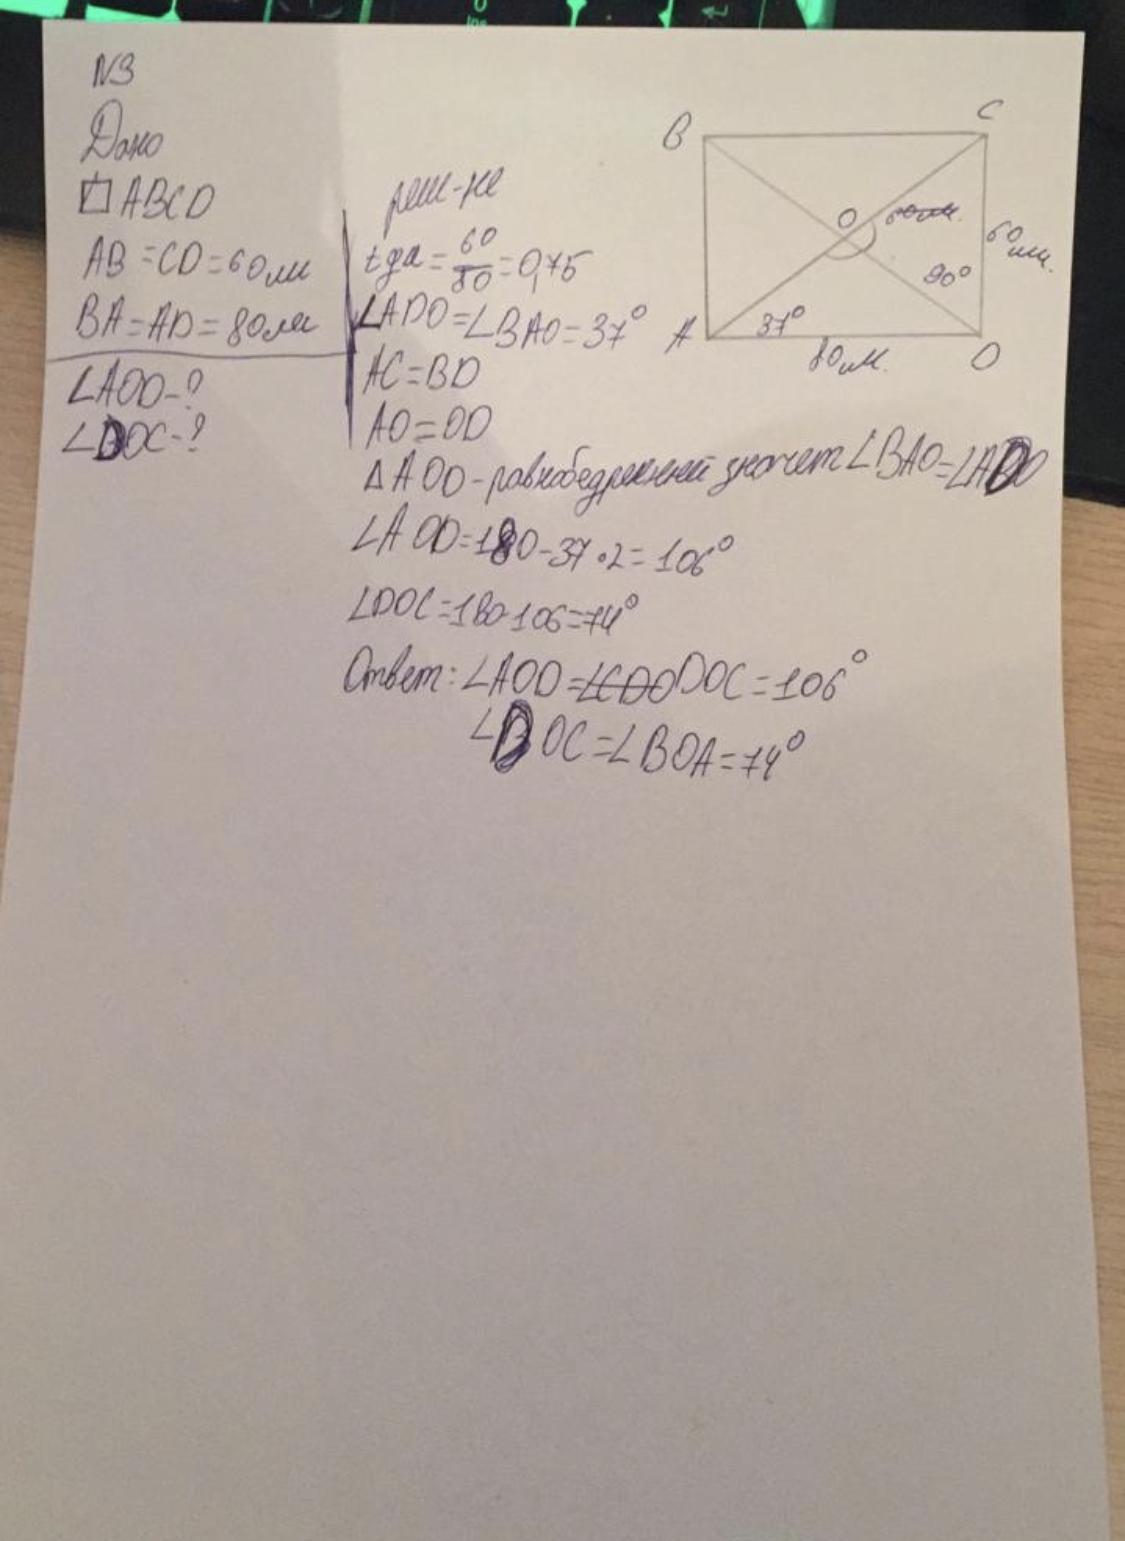 N3
Дано
▱ ABCD
AB = CD = 60 мм
BA = AD = 80 мм
∠AOD - ?
∠DOC - ?
реш-не
tga = 60/80 = 0,75
∠ADO = ∠BAO = 37°
AC = BD
AO = OD
∆ AOD - равнобедренный значет ∠BAO = ∠ADO
∠AOD = 180 - 37 · 2 = 106°
∠DOC = 180-106 = 74°
Ответ: ∠AOD = ∠CDO DOC = 106°
∠DOC = ∠BOA = 74°
B
C
O
60 мм.
60 мм.
90°
37°
A
D
80 мм.